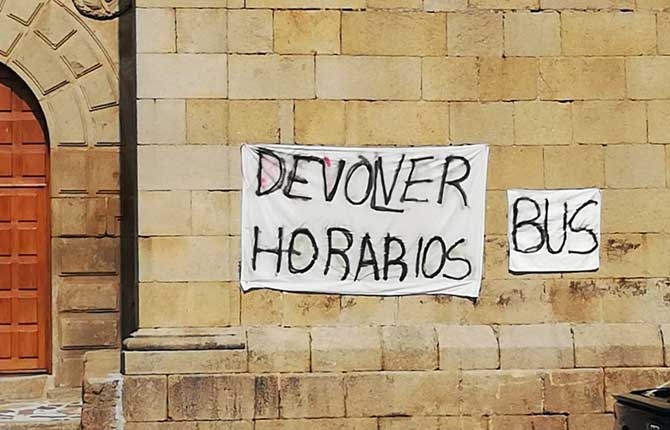 DEVOLVER
HORARIOS
BUS